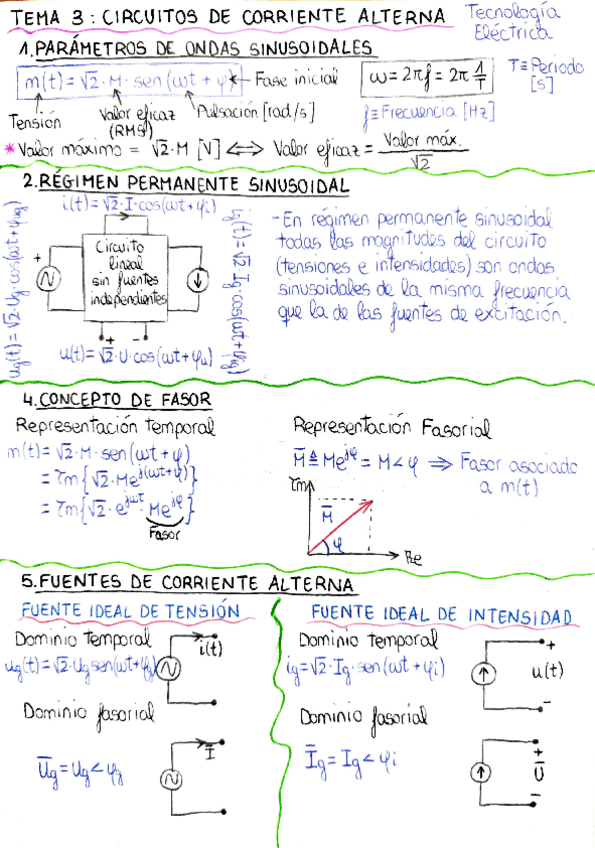 TEMA 3 : CIRCUITOS DE CORRIENTE ALTERNA
Tecnología
Eléctrica
1.PARÁMETROS DE ONDAS SINUSOIDALES
m(t) = √2 · M · sen (ωt + φ) ← Fase inicial
ω = 2πf = 2π 1/T
T ≡ Periodo
[s]
Tensión
Valor eficaz
(RMS)
Pulsación [rad/s]
f ≡ Frecuencia [Hz]
* Valor máximo = √2 · M [V] ⟺ Valor eficaz = Valor máx. / √2
2.RÉGIMEN PERMANENTE SINUSOIDAL
i(t) = √2 · I · cos(ωt + φi)
ug(t) = √2 · Ug · cos(ωt + φug)
+
Circuito
lineal
sin fuentes
independientes
ig(t) = √2 · Ig · cos(ωt + φig)
+ -
u(t) = √2 · U · cos(ωt + φu)
- En régimen permanente sinusoidal
todas las magnitudes del circuito
(tensiones e intensidades) son ondas
sinusoidales de la misma frecuencia
que la de las fuentes de excitación.
4.CONCEPTO DE FASOR
Representación temporal
m(t) = √2 · M · sen (ωt + φ)
= Im{√2 · Me^j(ωt+φ)}
= Im{√2 · e^jωt · Me^jφ}
Fasor
Representación Fasorial
M̄ ≜ Me^jφ = M∠φ ⇒ Fasor asociado
a m(t)
Im
M̄
φ
Re
5.FUENTES DE CORRIENTE ALTERNA
FUENTE IDEAL DE TENSIÓN
Dominio temporal
i(t)
ug(t) = √2 · Ug sen(ωt+φg)
Dominio fasorial
Ī
Ūg = Ug∠φg
FUENTE IDEAL DE INTENSIDAD
Dominio temporal
+
ig = √2 · Ig · sen (ωt + φi)
u(t)
-
Dominio fasorial
+
Īg = Ig∠φi
Ū
-